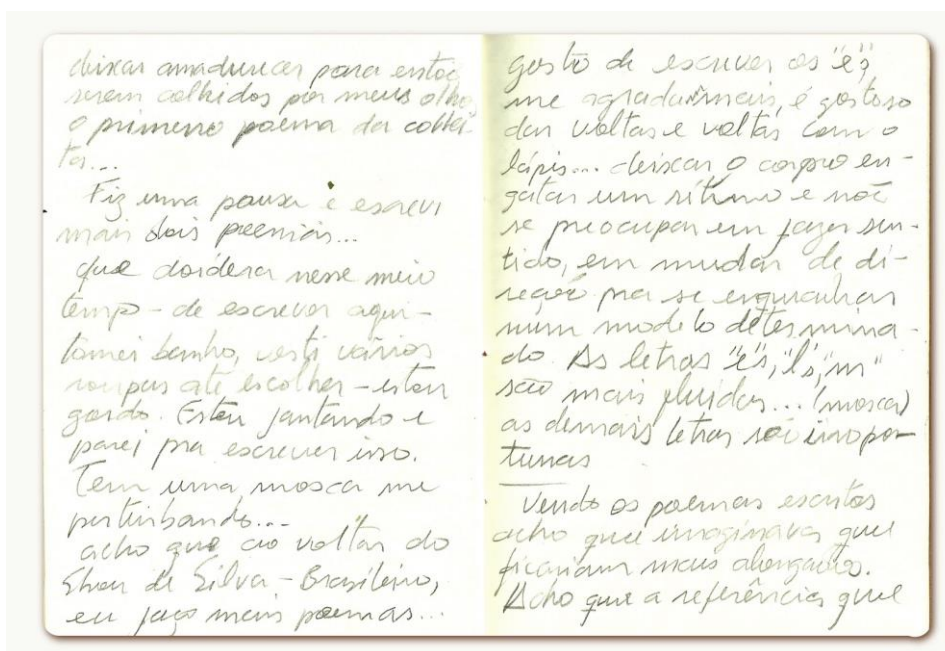 deixar amadurecer para então
serem colhidos por meus olhos
o primeiro poema da colhei-
ta...
Fiz uma pausa e escrevi
mais dois poemas...
que doidera nesse meio
tempo - de escrever aqui -
tomei banho, vesti várias
roupas até escolher - estou
gordo. Estou jantando e
parei pra escrever isso.
Tem uma mosca me
perturbando...
acho que ao voltar do
Show de Silva - Brasileiro,
eu faço mais poemas...
gosto de escrever os "é's"
me agrada mais, é gostoso
dar voltas e voltas com o
lápis... deixar o corpo en-
gatar um rítimo e não
se preocupar em fazer sen-
tido, em mudar de di-
reção pra se enquadrar
num modelo determina-
do. As letras "é's", "l's", "m"
são mais fluidas... (mosca)
as demais letras são inopor-
tunas
Vendo os poemas escritos
acho que imaginava que
ficariam mais alongados.
Acho que a referência que